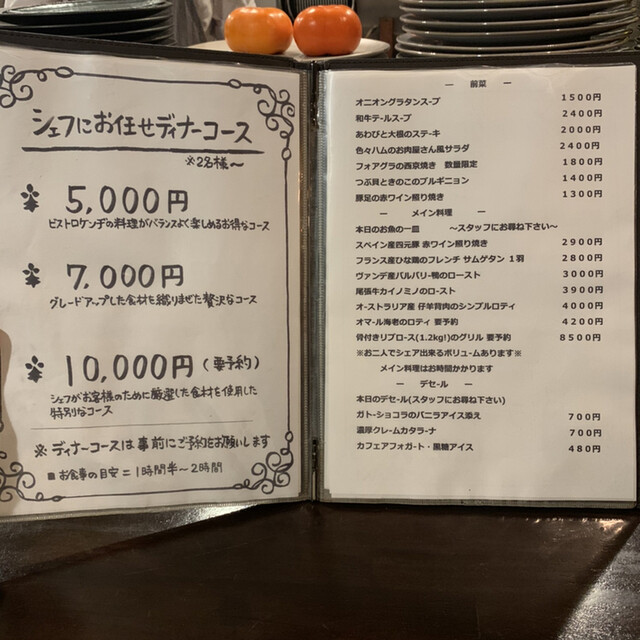 シェフにお任せディナーコース
※2名様～
5,000円
ビストロケンヂの料理がバランスよく楽しめるお得なコース
7,000円
グレードアップした食材を織りまぜた贅沢なコース
10,000円（要予約）
シェフがお客様のために厳選した食材を使用した
特別なコース
※ディナーコースは事前にご予約をお願いします
■お食事の目安=1時間半～2時間
― 前菜 ―
オニオングラタンスープ 1500円
和牛テールスープ 2400円
あわびと大根のステーキ 2000円
色々ハムのお肉屋さん風サラダ 2400円
フォアグラの西京焼き 数量限定 1800円
つぶ貝ときのこのブルギニョン 1400円
豚足の赤ワイン照り焼き 1300円
― メイン料理 ―
本日のお魚の一皿 ～スタッフにお尋ね下さい～
スペイン産四元豚 赤ワイン照り焼き 2900円
フランス産ひな鶏のフレンチ サムゲタン 1羽 2800円
ヴァンデ産バルバリー鴨のロースト 3000円
尾張牛カイノミノのロースト 3900円
オーストラリア産 仔羊背肉のシンプルロティ 4000円
オマール海老のロティ 要予約 4200円
骨付きリブロース(1.2kg!)のグリル 要予約 8500円
※お二人でシェア出来るボリュームあります※
メイン料理はお時間かかります
― デセール ―
本日のデセール(スタッフにお尋ね下さい)
ガトーショコラのバニラアイス添え 700円
濃厚クレームカタラーナ 700円
カフェアフォガート・黒糖アイス 480円